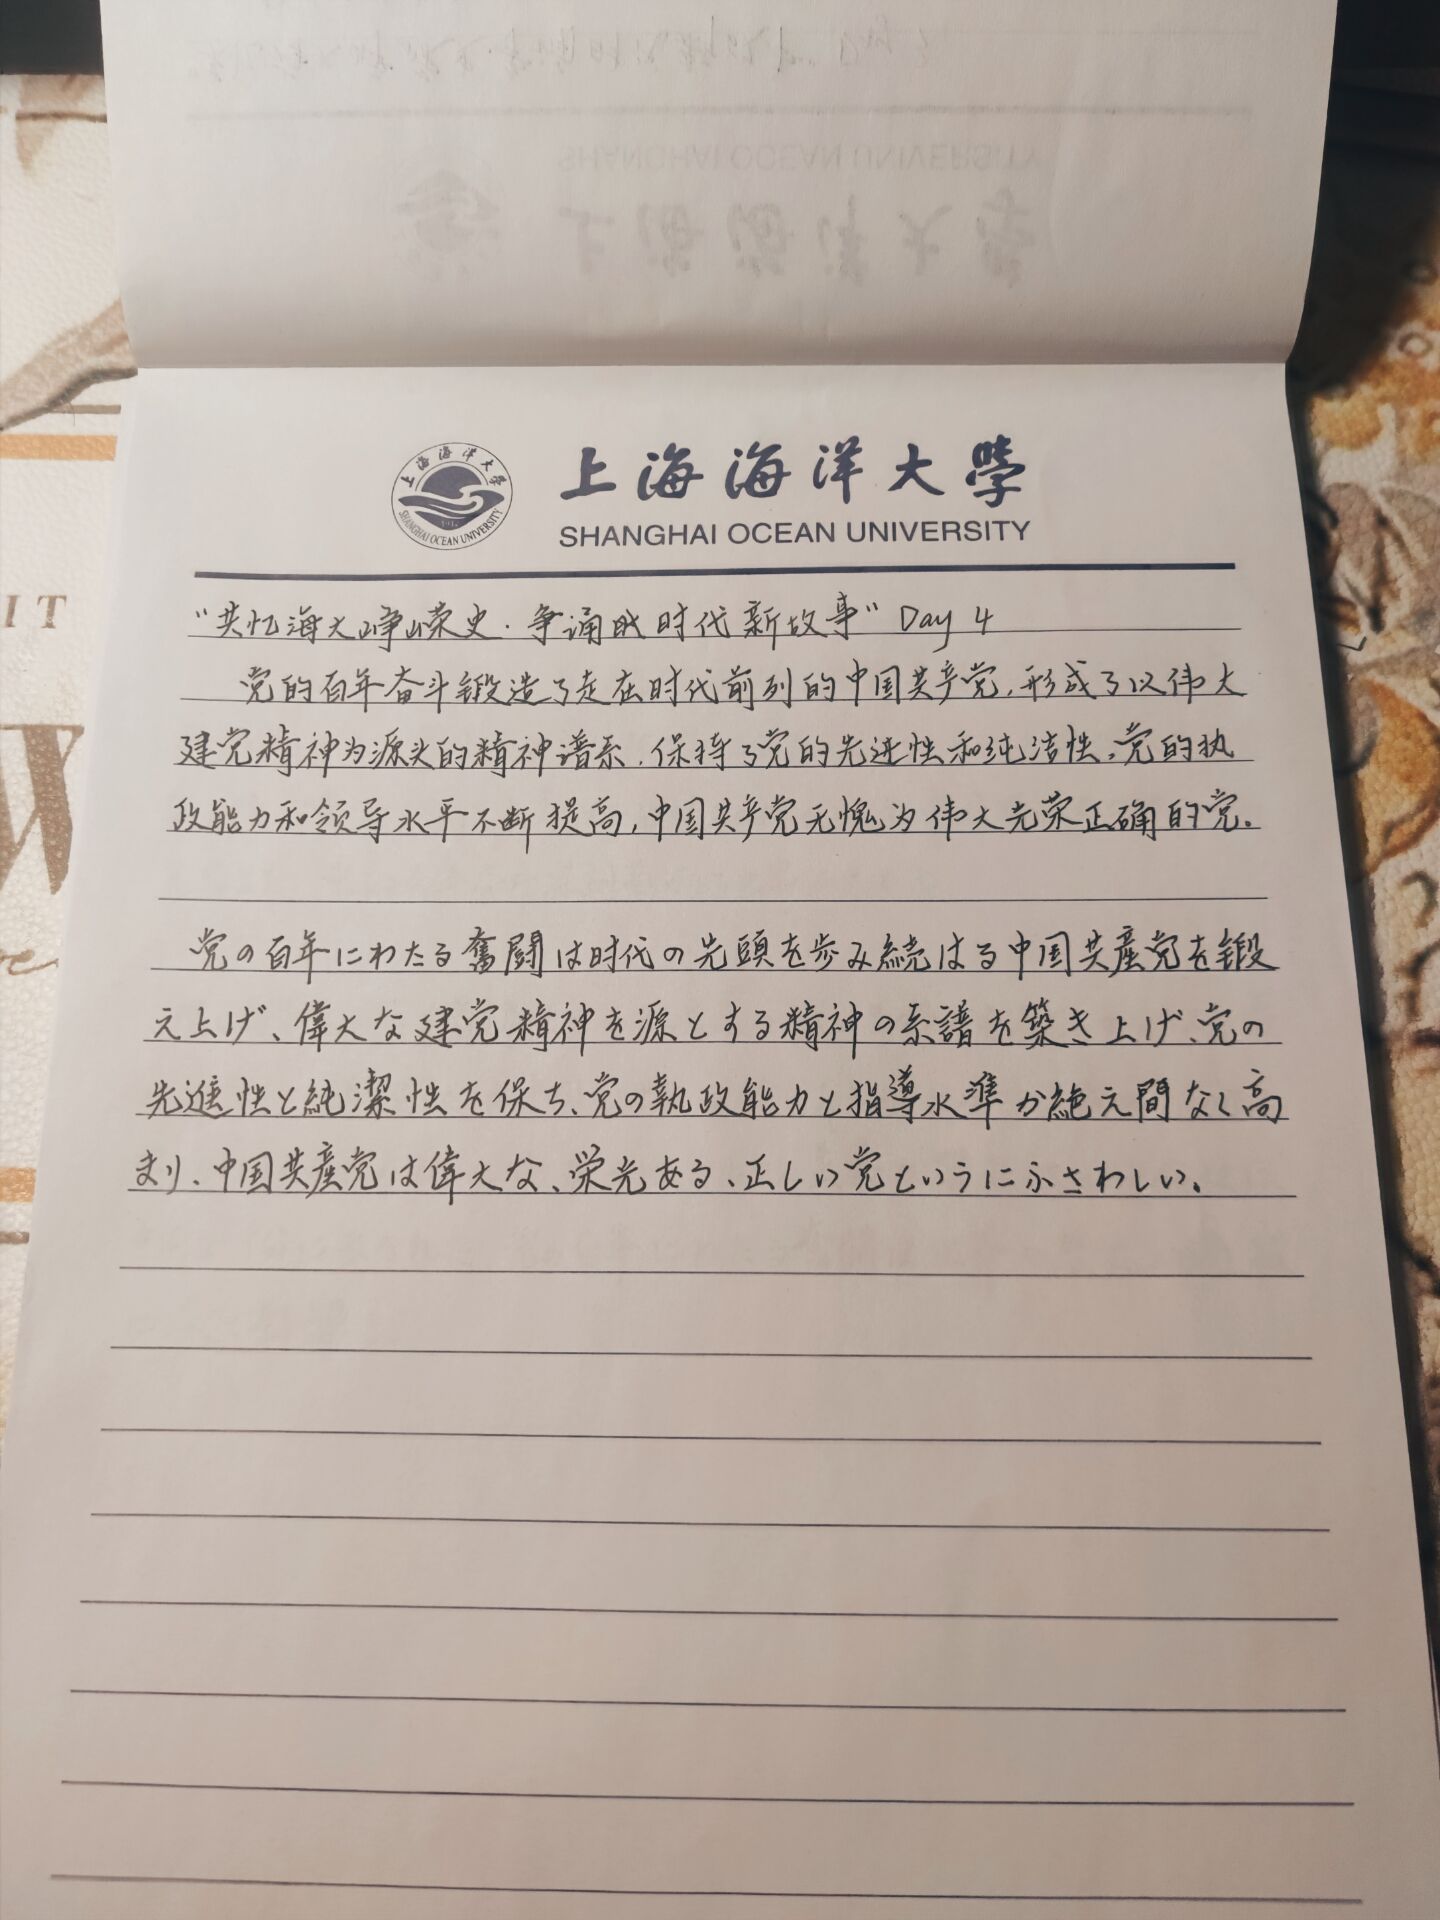 上海海洋大學
SHANGHAI OCEAN UNIVERSITY
上海海洋大学
SHANGHAI OCEAN UNIVERSITY
"共忆海大峥嵘史·争诵时代新故事" Day 4
党的百年奋斗锻造了走在时代前列的中国共产党，形成了以伟大
建党精神为源头的精神谱系，保持了党的先进性和纯洁性，党的执
政能力和领导水平不断提高，中国共产党无愧为伟大光荣正确的党。
党の百年にわたる奮闘は时代の先頭を歩み続はる中国共産党を鍛
え上げ、偉大な建党精神を源とする精神の系譜を築き上げ、党の
先進性と純潔性を保ち、党の執政能力と指導水準が絶え間なく高
まり、中国共産党は偉大な、栄光ある、正しい党というにふさわしい。
IT
W